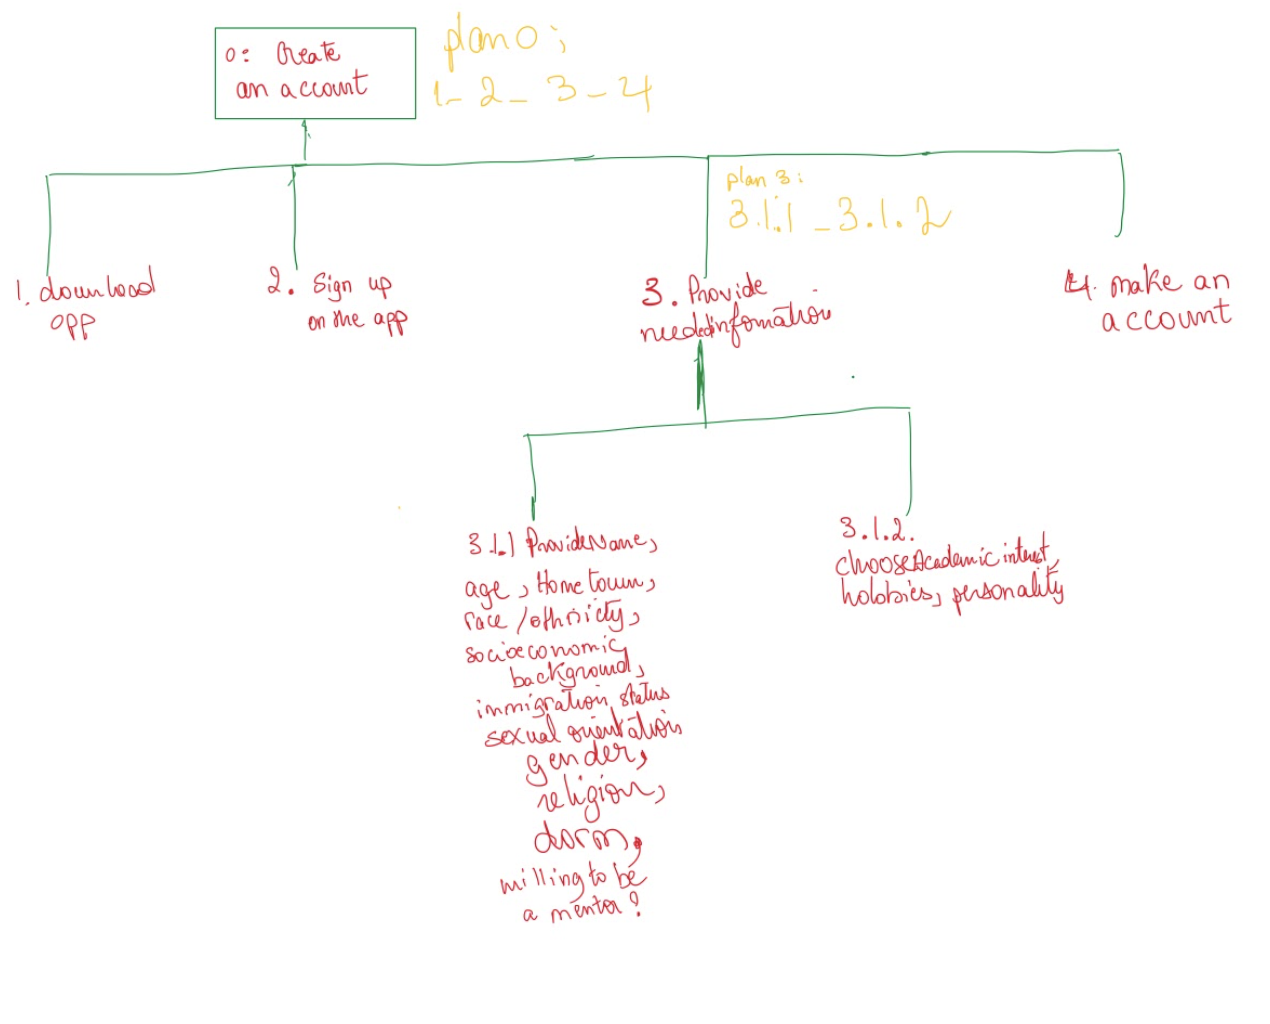 0: Create
an account
plan 0;
1-2-3-4
plan 3:
3.1.1-3.1.2
1. download
app
2. Sign up
on the app
3. Provide
needed infomation
4. make an
account
3.1.1 Provide Name,
age, Home town,
race/ethnicity,
socioeconomic
background,
immigration status
sexual orientation
gender,
religion,
dorm,
willing to be
a mentor?
3.1.2.
choose Academic interest,
hobbies, personality